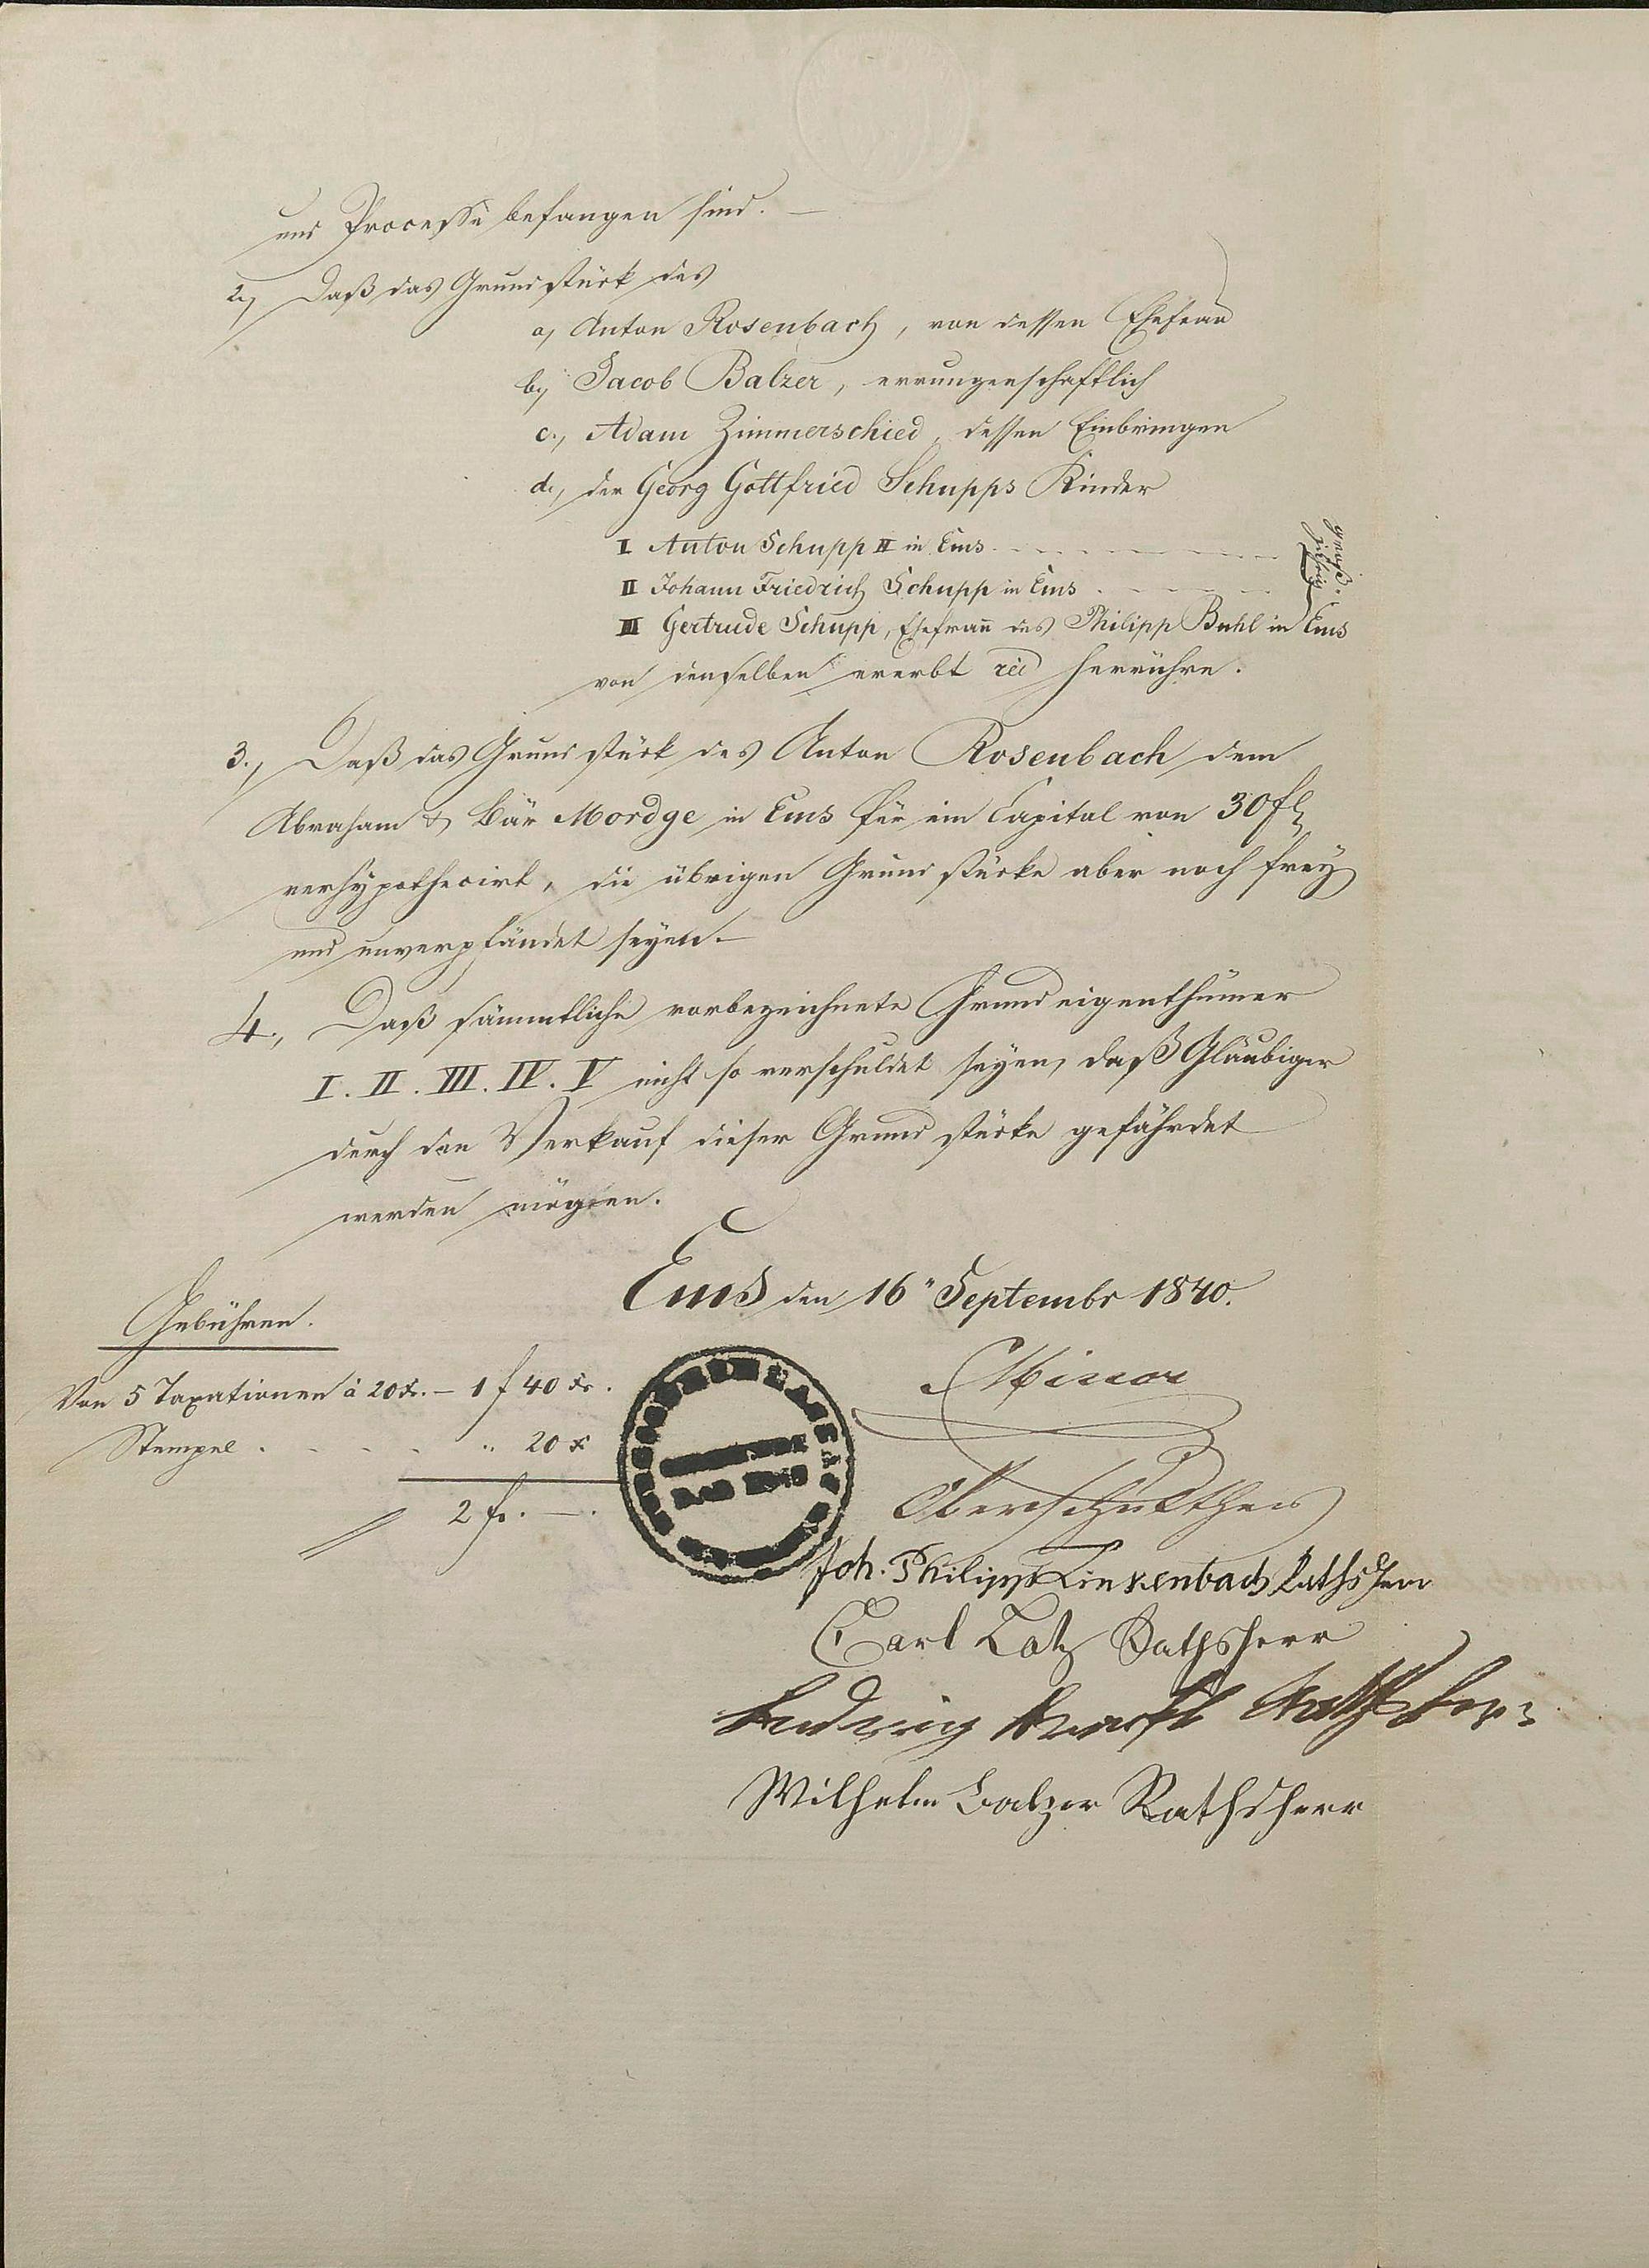 und Processe befangen sind. —
2., Daß das Grundstück des
a, Anton Rosenbach, von dessen Ehefrau
b, Jacob Balzer, errungenschaftlich
c., Adam Zimmerschied, dessen Einbringen
d., der Georg Gottfried Schupps Kinder
I Anton Schupp II in Ems
II Johann Friedrich Schupp in Ems
großjährig
III Gertrude Schupp, Ehefrau des Philipp Buhl in Ems
von denselben ererbt herrühre.
3., Daß das Grundstück des Anton Rosenbach dem
Abraham & Bär Mordge in Ems für ein Capital von 30 fl
verhypothecirt, die übrigen Grundstücke aber noch frey
und unverpfändet seyen. —
4., Daß sämmtliche vorbezeichnete Grundeigenthümer
I. II. III. IV. V nicht so verschuldet seyen, daß Gläubiger
durch den Verkauf dieser Grundstücke gefährdet
werden mögten.
Ems den 16" Septembr 1840.
Gebühren.
Von 5 Taxationen à 20 x. — 1 f 40 x.
Stempel . . . . . " 20 x
2 f. — .
Minor
Oberschultheis
Joh. Philipp Linkenbach Rathsherr
Carl Lotz Rathsherr
Ludwig Rathsherr
Wilhelm Balzer Rathsherr